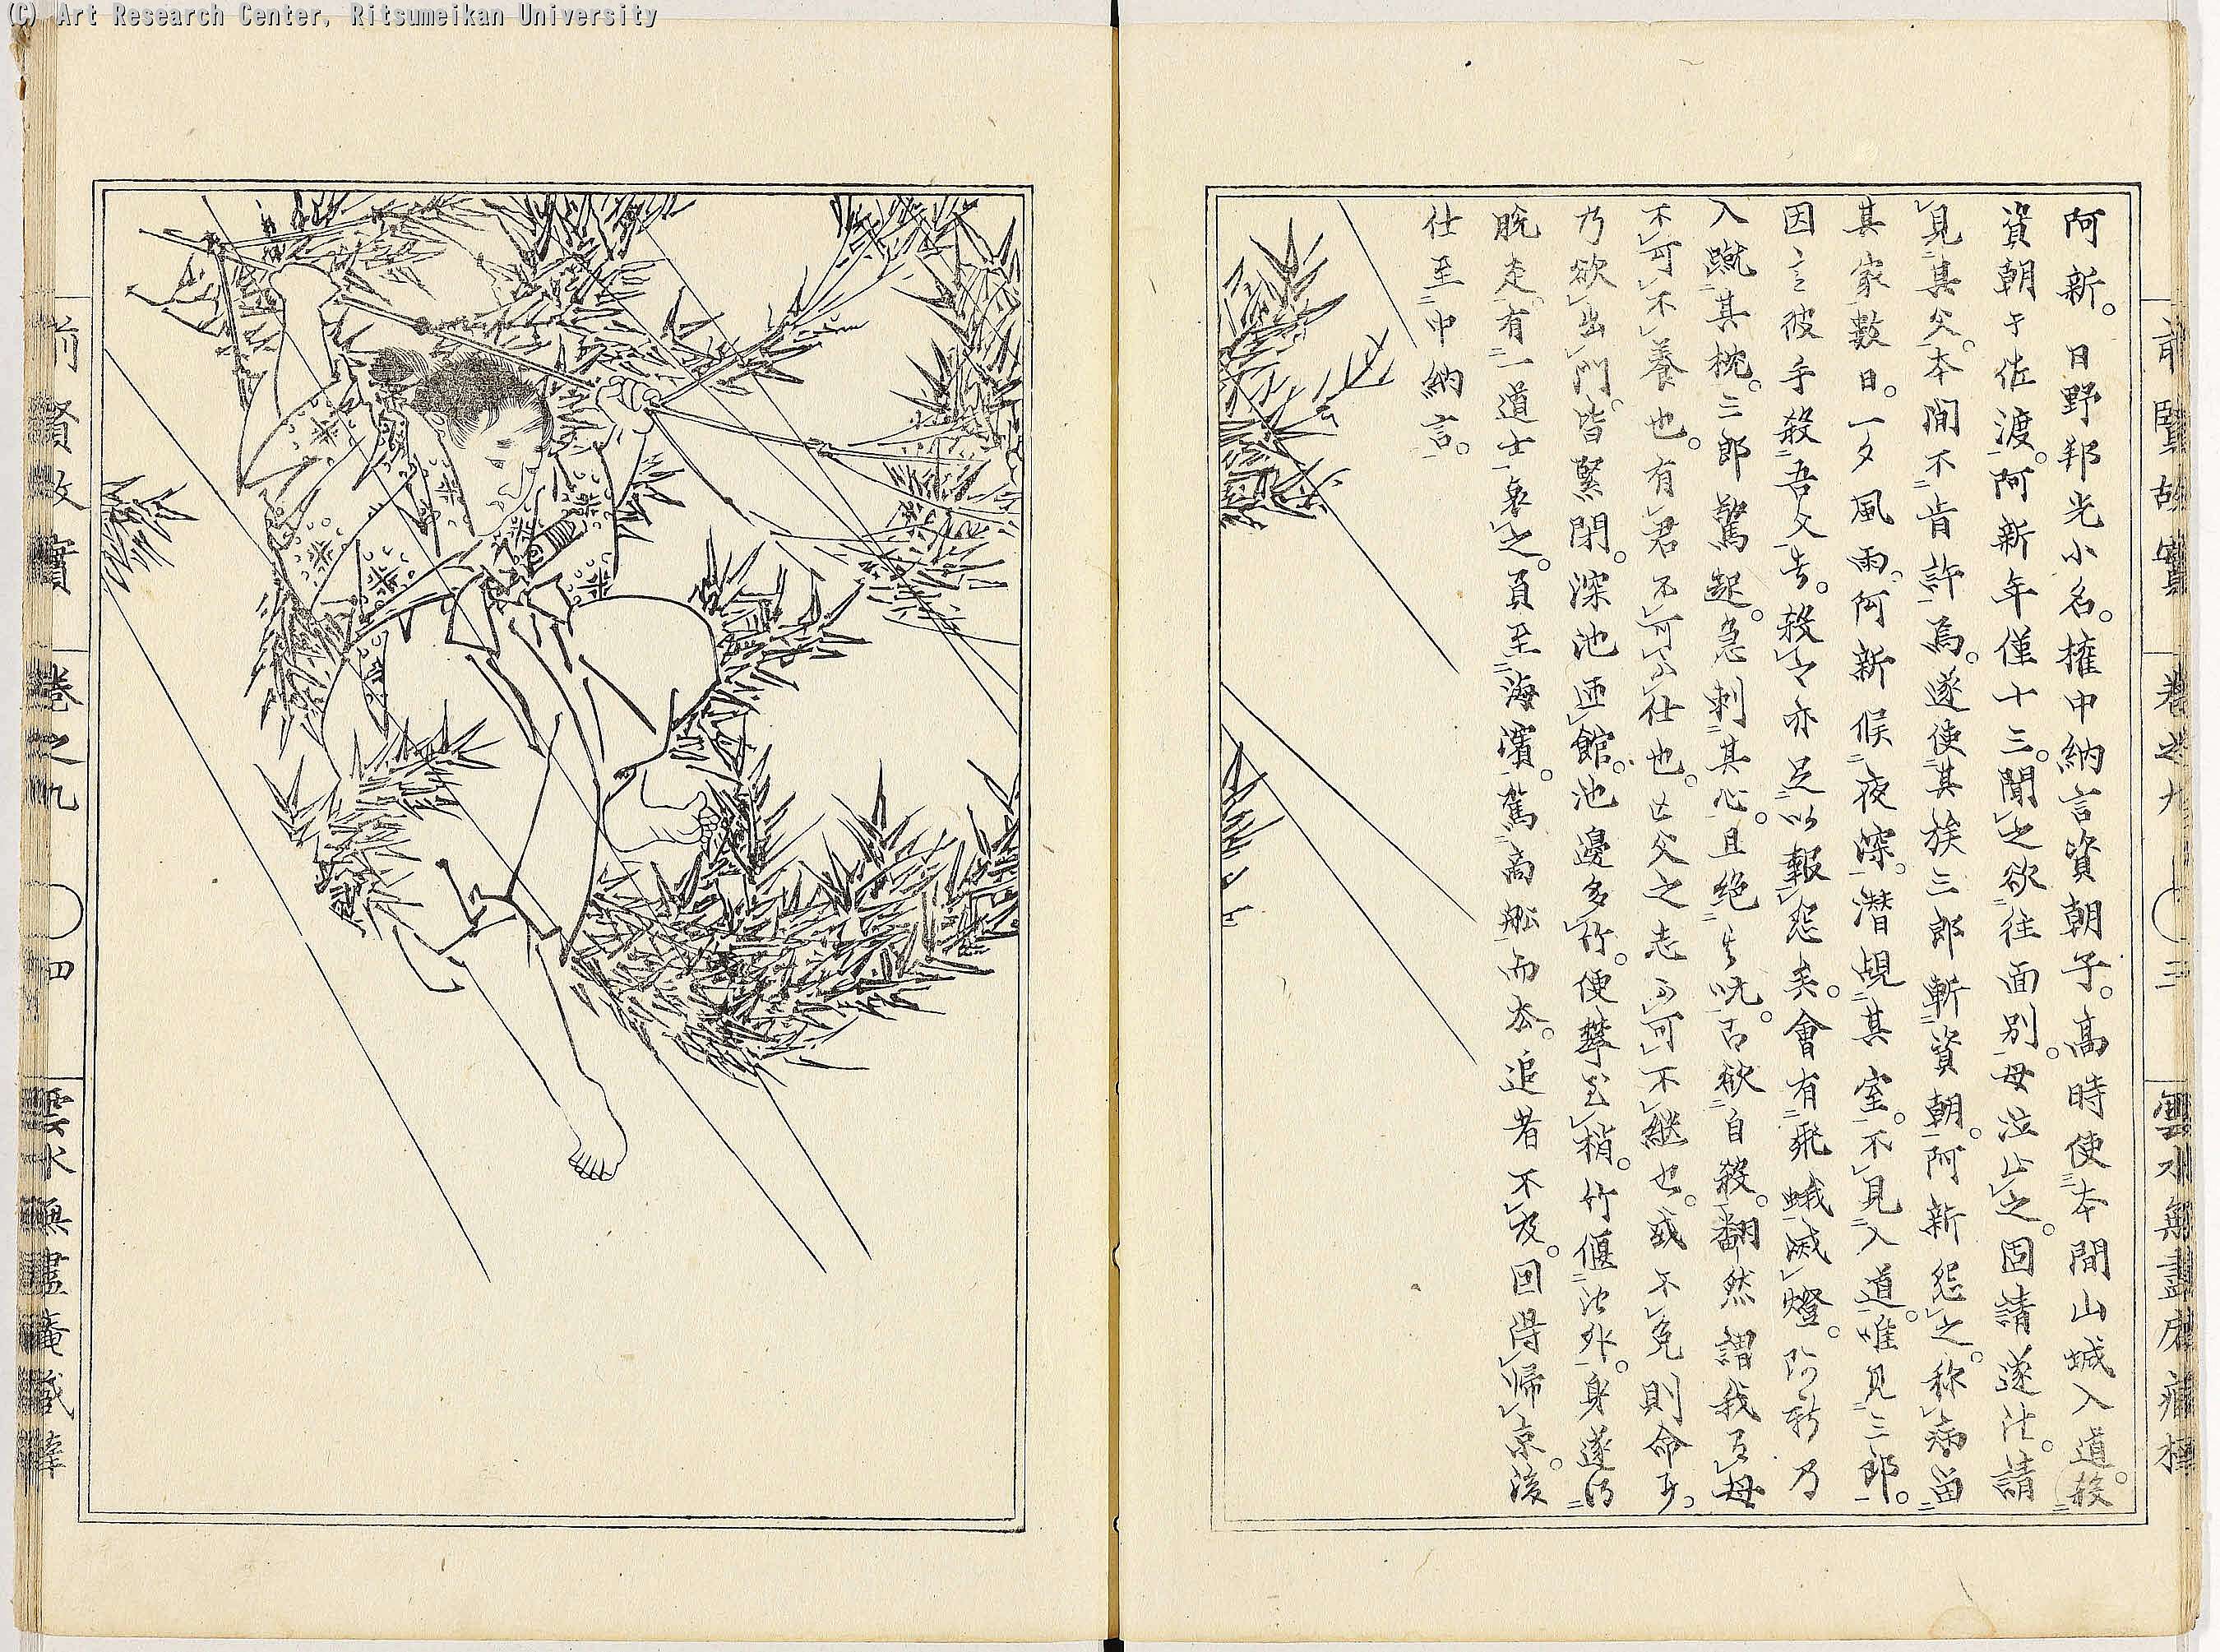 (C) Art Research Center, Ritsumeikan University
阿新。日野邦光小名。権中納言資朝子。高時使本間山城入道。殺
資朝于佐渡。阿新年僅十三。聞之欲往面別。母泣止之。固請遂往。請
見其父。本間不肯許焉。遂使其族三郎斬資朝。阿新怨之。称病留
其家數日。一夕風雨。阿新候夜深。潜覘其室。不見入道。唯見三郎。
因言彼手殺吾父者。殺之亦足以報怨矣。會有飛蛾滅燈。阿新乃
入蹴其枕。三郎驚起。急刺其心。且絶其吭。已欲自殺。翻然謂我有母
不可不養也。有君不可不仕也。亡父之志不可不継也。或不免則命耳。
乃欲出門。皆緊閉。深池匝館。池邊多竹。便攀至梢。竹偃池外。身遂得
脱走。有一道士哀之。負至海濱。駕商舩而去。追者不及。因得帰京。後
仕至中納言。
前賢故實 巻之九 三 雲水無盡庵藏
前賢故實 巻之九 四 雲水無盡庵藏